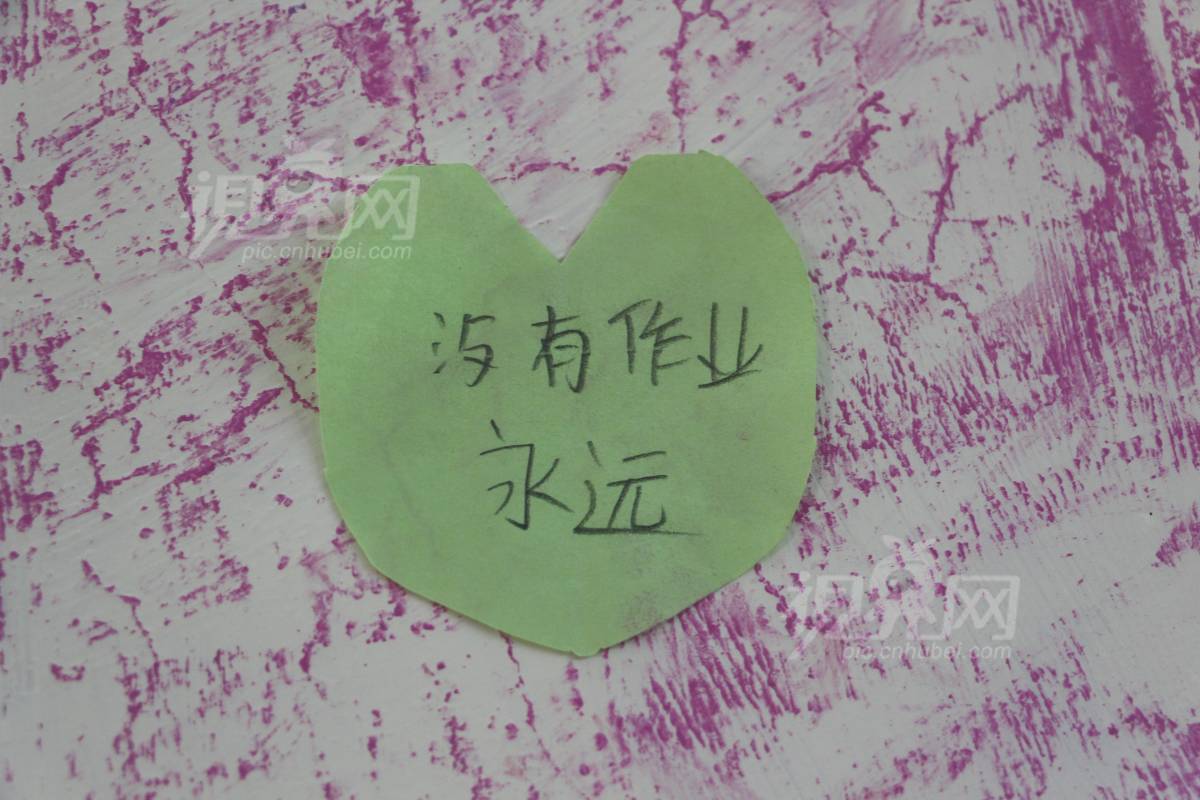 视界网
pic.cnhubei.com
没有作业
永远
视界网
pic.cnhubei.com